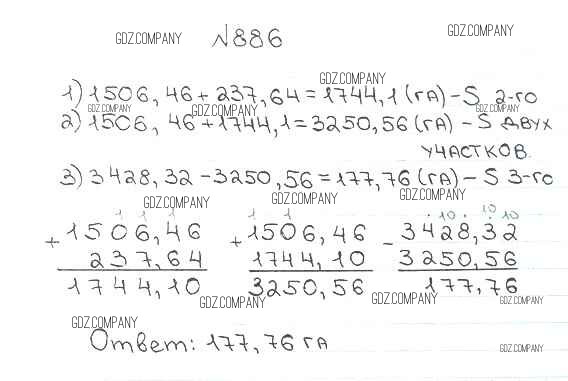 GDZ.COMPANY №886 GDZ.COMPANY
GDZ.COMPANY
1) 1506,46 + 237,64 = 1744,1 (га) – S 2-го
GDZ.COMPANY GDZ.COMPANY GDZ.COMPANY
2) 1506,46 + 1744,1 = 3250,56 (га) – S двух
участков.
GDZ.COMPANY
3) 3428,32 – 3250,56 = 177,76 (га) – S 3-го
GDZ.COMPANY GDZ.COMPANY GDZ.COMPANY
1 1 1 1 1 . 10 . 10 10
+ 1506,46 + 1506,46 – 3428,32
237,64 1744,10 3250,56
1744,10 3250,56 177,76
GDZ.COMPANY GDZ.COMPANY GDZ.COMPANY
GDZ.COMPANY
Ответ: 177,76 га
GDZ.COMPANY